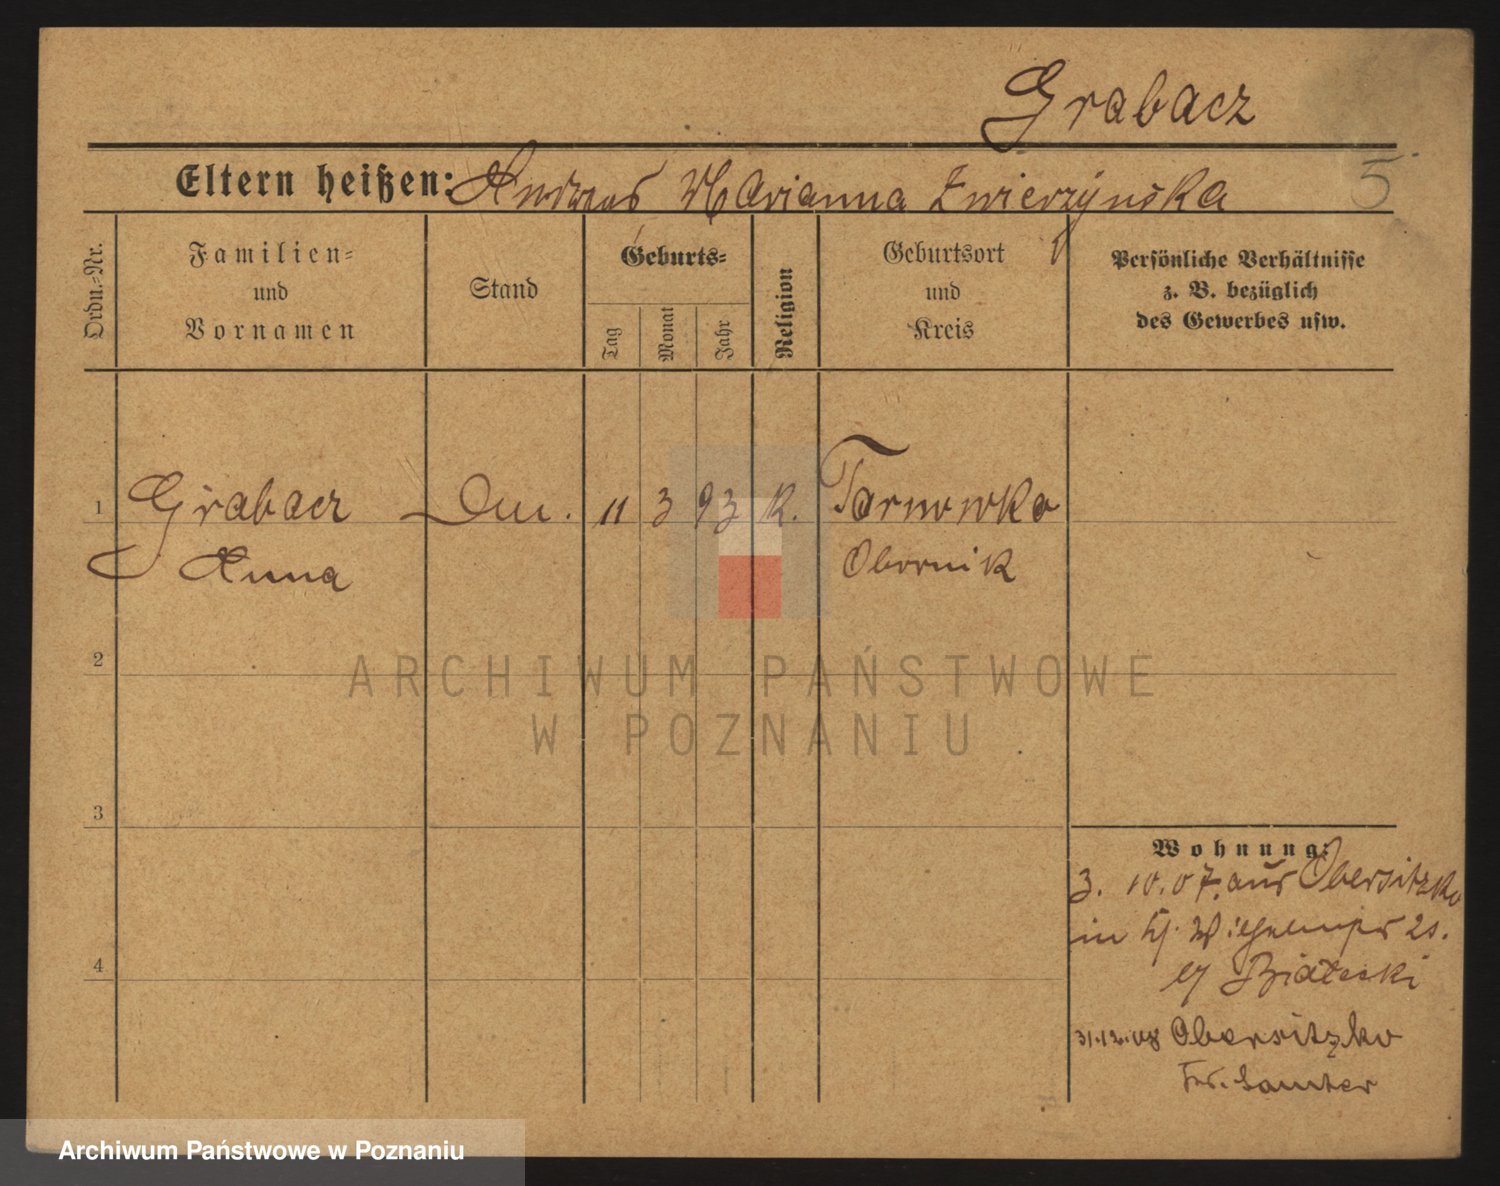 Grabacz
Eltern heißen: Andreas Marianna Zwierzyńska
5
Ordn.-Nr.
Familien-
und
Vornamen
Stand
Geburts-
Tag
Monat
Jahr
Religion
Geburtsort
und
Kreis
Persönliche Verhältnisse
z. B. bezüglich
des Gewerbes usw.
1 Grabacz 11 3 93 K. Tarnowko
Anna Obornik
2
3
4
Wohnung:
3. 10. 07. aus Obersitzko
in
Białecki
31.12.08 Obersitzko
Samter
ARCHIWUM PAŃSTWOWE
W POZNANIU
Archiwum Państwowe w Poznaniu